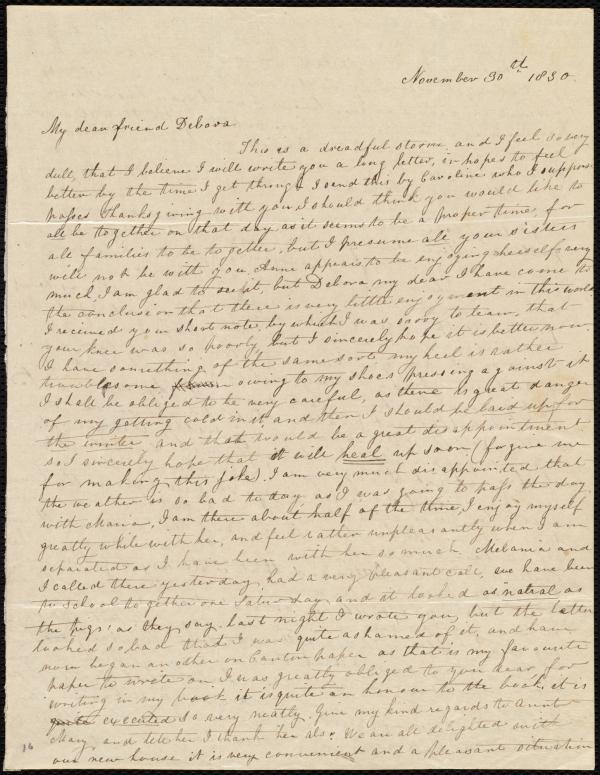 November 30th 1830
My dear friend Debora
This is a dreadful storm and I feel so very
dull, that I believe I will write you a long letter, in hopes to feel
better by the time I get through I send this by Caroline who I suppose
passes Thanksgiving with you I should think you would like to
all be together on that day as it seems to be a proper time, for
all families to be together, but I presume all your sisters
will not be with you, Anne appears to be enjoying herself very
much, I am glad to see it, but Debora my dear I have come to
the conclusion that there is very little enjoyment in this world
I recieved your short note, by which I was sorry to learn, that
your knee was so poorly but I sincerely hope it is better now
I have something of the same sort my heel is rather
troublesome owing to my shoes pressing against it
I shall be obliged to be very careful, as there is great danger
of my getting cold in it, and then I should be laid up for
the winter and that would be a great disappointment
so I sincerely hope that it will heal up soon (forgive me
for making this joke). I am very much disappointed that
the weather is so bad to day as I was going to pass the day
with Maria, I am there about half of the time, I enjoy myself
greatly while with her, and feel rather unpleasantly when I am
separated as I have been with her so much Melania and
I called there yesterday, had a very pleasant call, we have been
to school together one Saturday and it looked as natural as
the pigs, as they say. last night I wrote you, but the letter
looked so bad that I was quite ashamed of it, and have
now began an other on Canton paper as that is my favourite
paper to write on I was greatly obliged to you dear, for
writing in my book it is quite an honour to the book, it is
quite executed so very neatly. Give my kind regards to Aunt
Mary, and tell her I thank her also. We are all delighted with
our new house it is very convenient and a pleasant situation
16